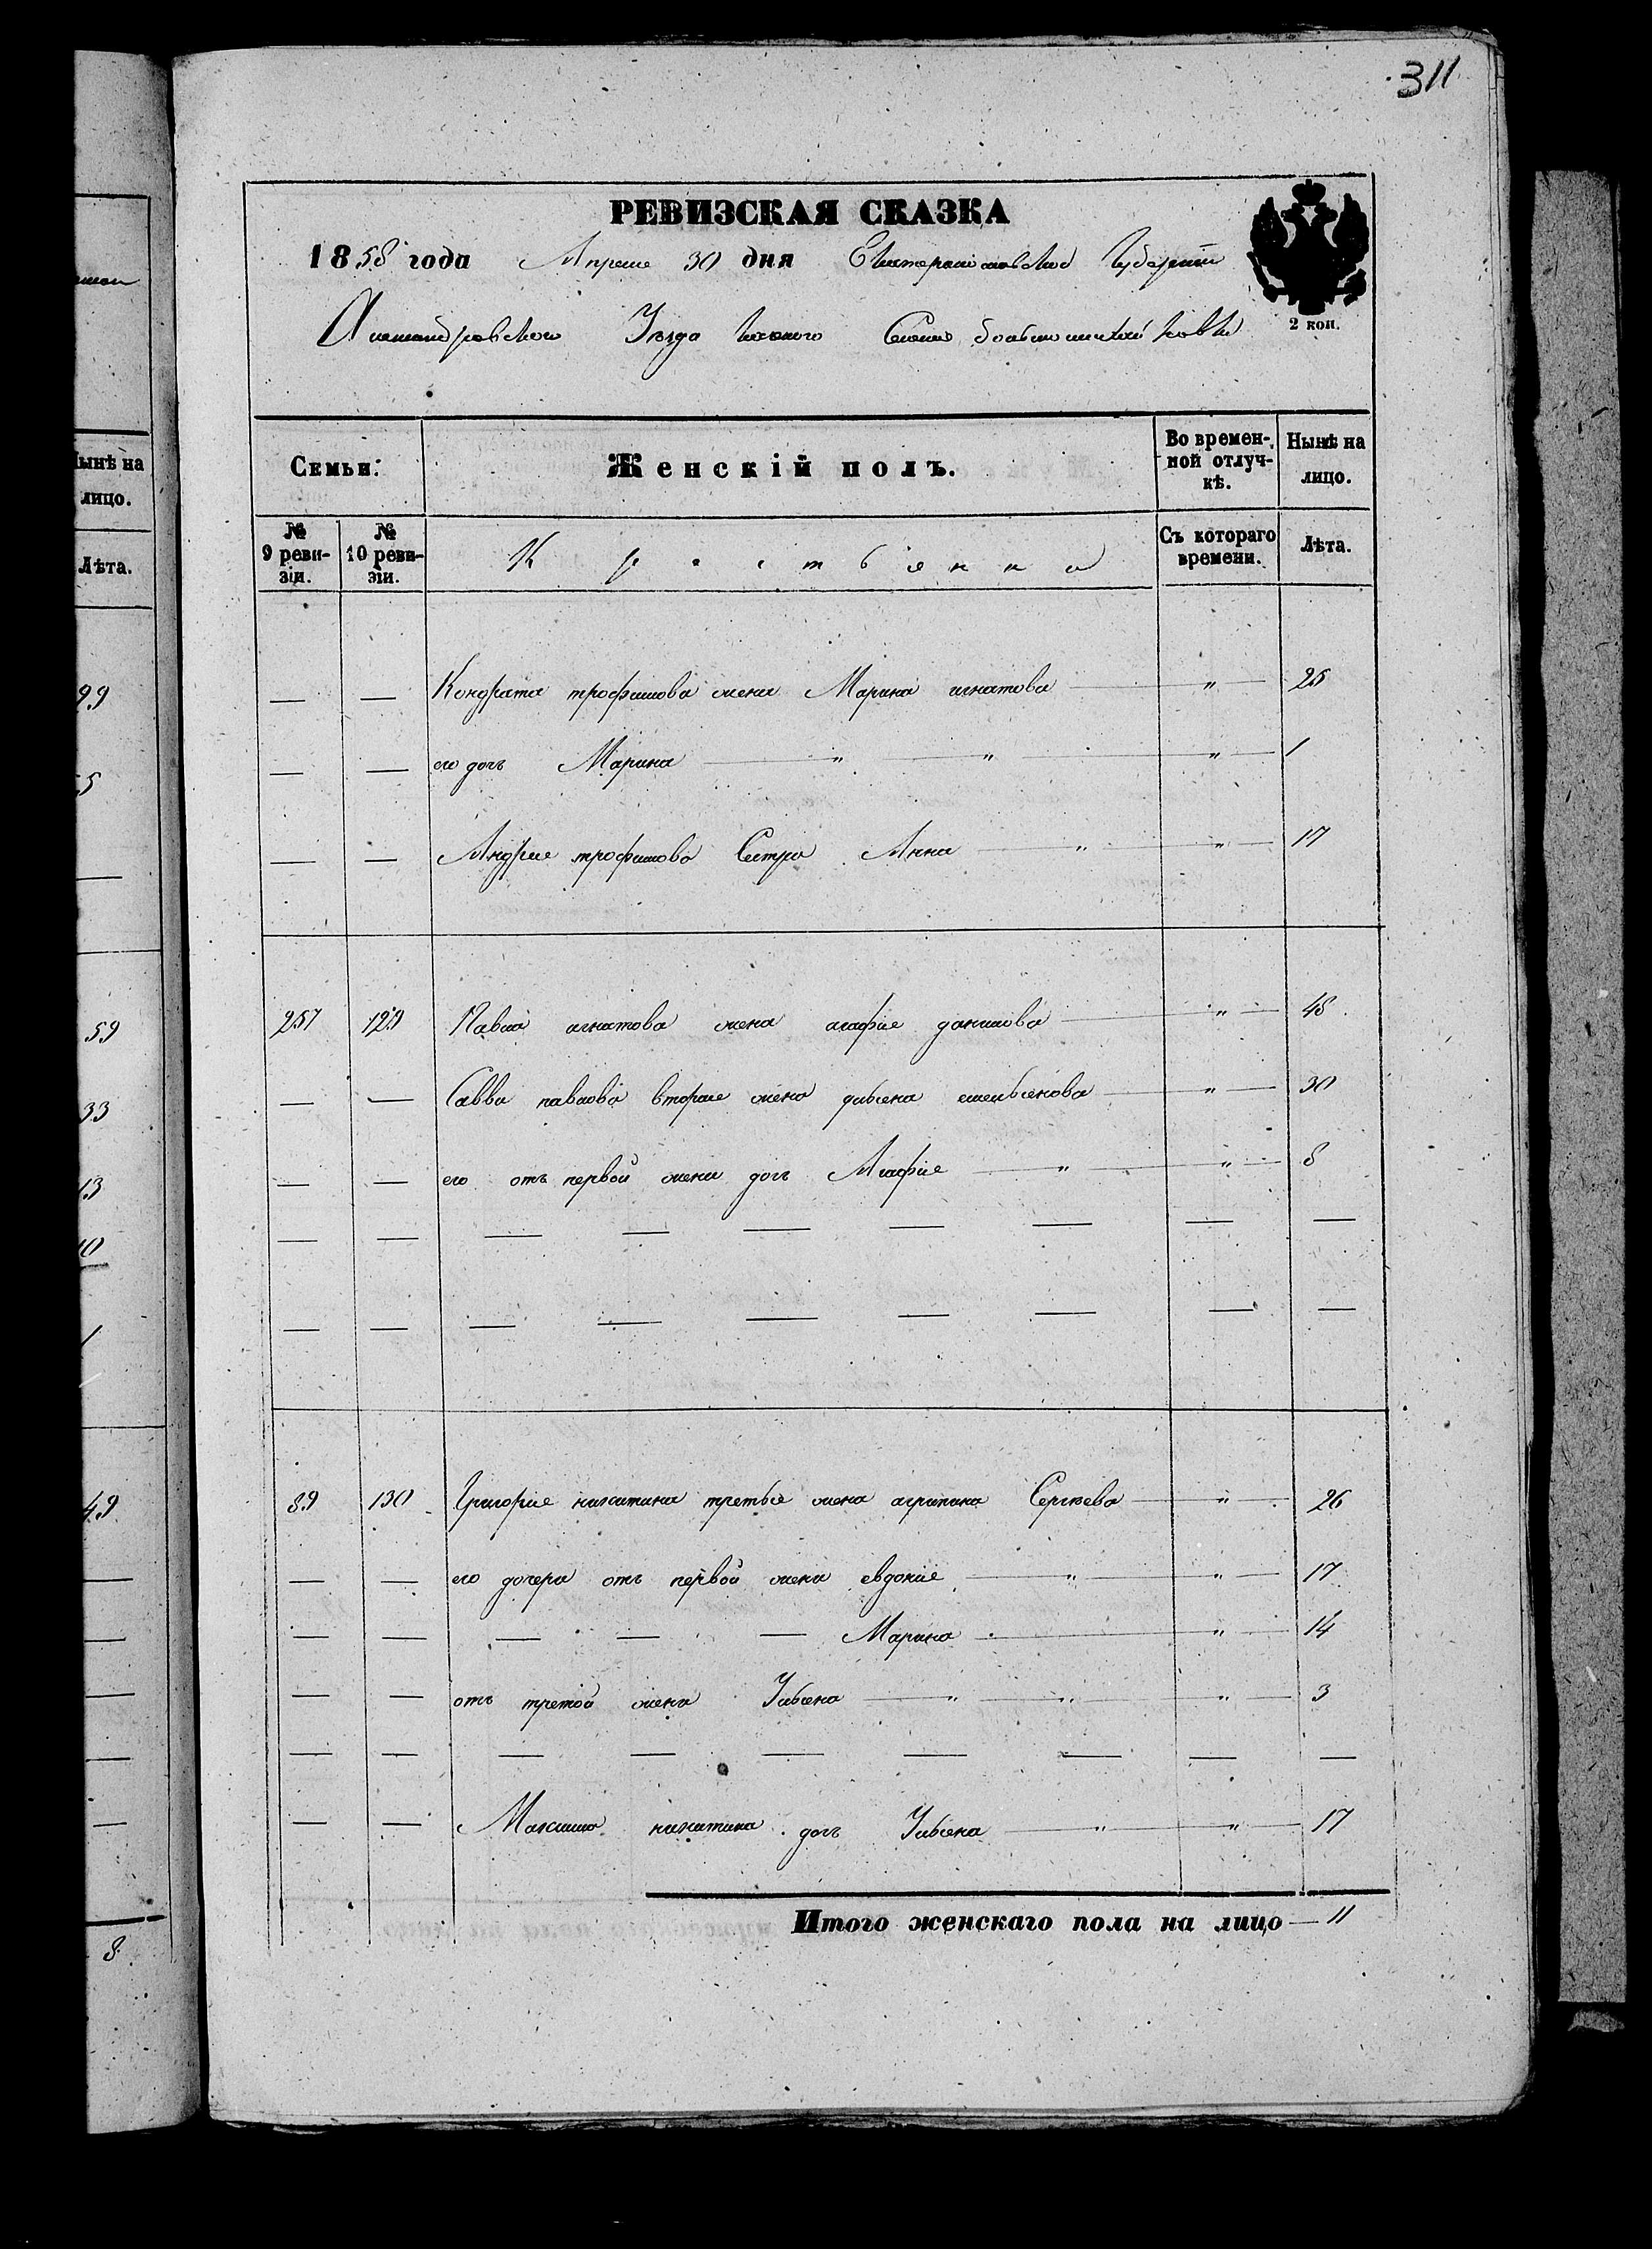 311
РЕВИЗСКАЯ СКАЗКА
1858 года Апреля 30 дня Екатеринославской Губернии
Александровского Уезда Села
2 коп.
Семьи. Женскій полъ. Во времен-ной отлуч-кѣ. Нынѣ на лицо.
№ 9 реви-зіи. № 10 реви-зіи. Съ котораго времени. Лѣта.
— — Кондрата трофимова жена Марина игнатова — " — 25
— — его дочь Марина — " — " — " — 1
— — Андрея трофимова Сестра Анна — " — " — 17
257 129 Павла игнатова жена агафия данилова — " — 48
— — Саввы павлова вторая жена емельянова — " — 30
— — его отъ первой жены дочь Агафия — " — " — 8
— — — — — — — — —
— — — — — — — — —
89 130 Григория никитина третья жена агрипина Сергеева — " — 26
— — его дочери отъ первой жены евдокия — " — " — 17
— — — — — Марина — " — 14
— — отъ третой жены Улияна — " — " — " — 3
— — — — — — — — —
— — Максима никитина дочь Улияна — " — " — 17
Итого женскаго пола на лицо — 11
ынѣ на
лицо.
Лѣта.
59
33
13
10
1
49
8